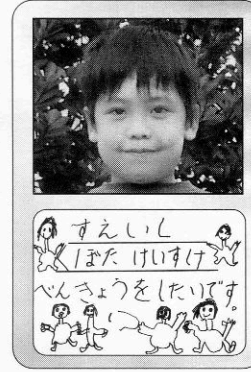 すえいし
ぼた けいすけ
べんきょうをしたいです。